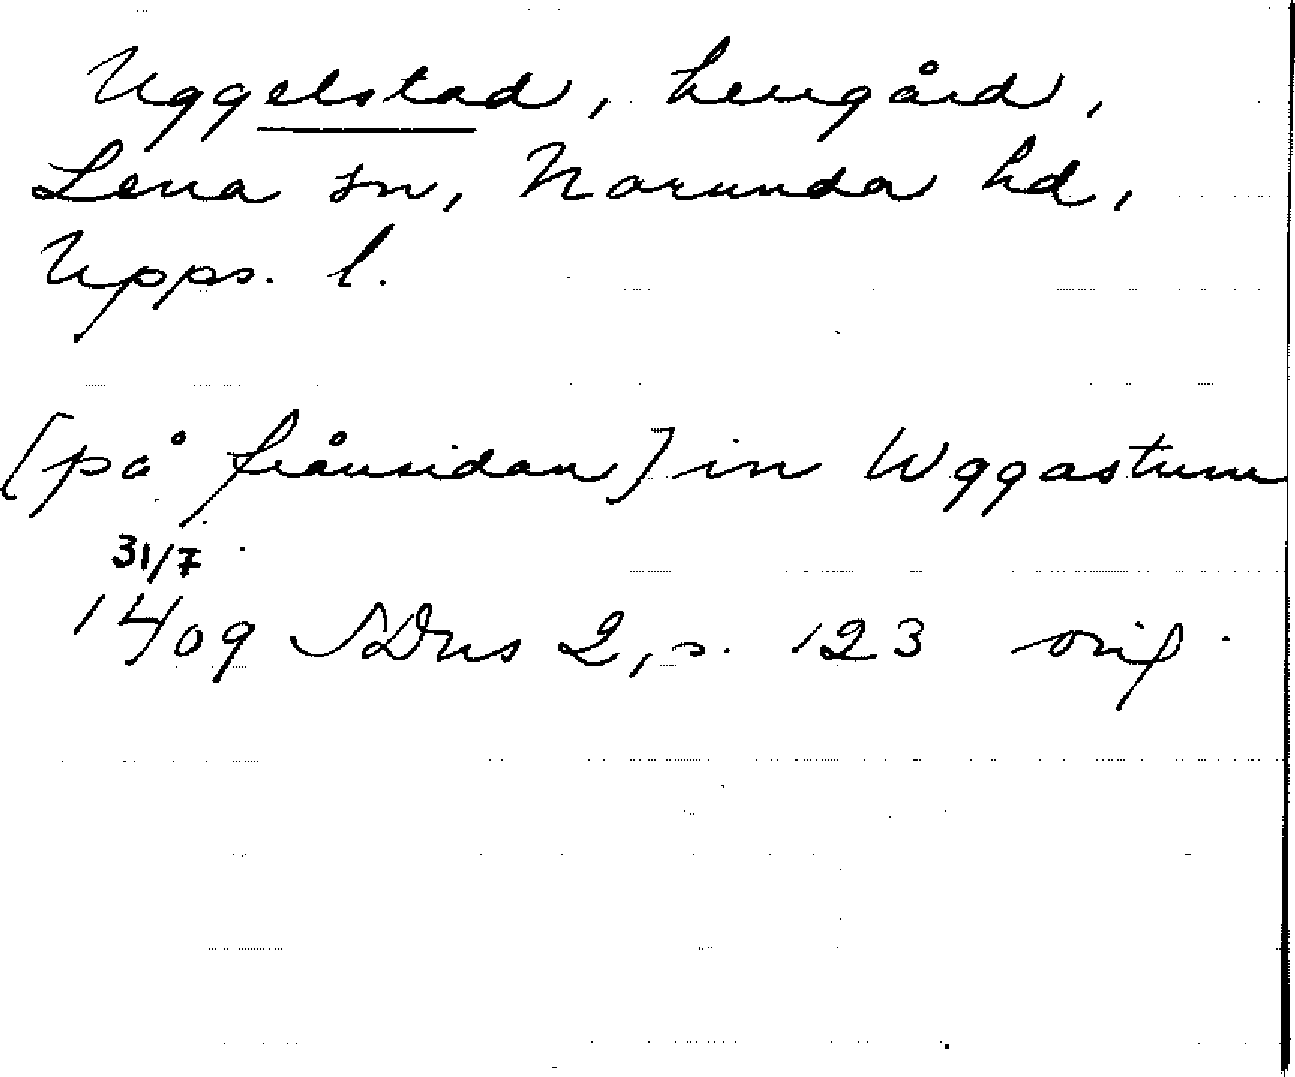 Uggelstad, herrgård,
Lena sn, Norunda hd,
Upps. l.
[på frånsidan] in Wggastum
31/7
1409 SDns 2, s. 123 orig.